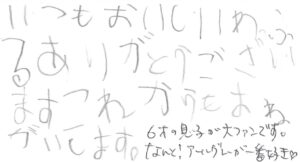 いつもおいしいわっふ
るありがとうござい
ますこれからもおね
がいします。
6才の息子が大ファンです。
なんと!アールグレーが一番好き♡